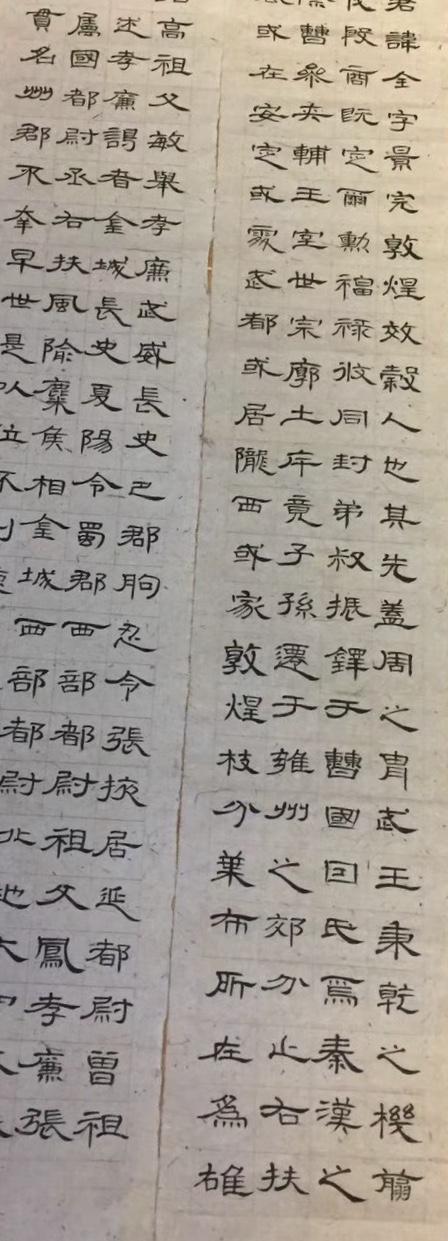 君諱全字景完敦煌效穀人也其先蓋周之胄武王秉乾之機翦
伐殷商既定爾勳福祿攸同封弟叔振鐸于曹國因氏焉秦漢之
曹參夾輔王室世宗廓土斥竟子孫遷于雍州之郊分止右扶
或在安定或處武都或居隴西或家敦煌枝分葉布所在為雄
高祖父敏舉孝廉武威長史巴郡朐忍令張掖居延都尉曾祖
述孝廉謁者金城長史夏陽令蜀郡西部都尉祖父鳳孝廉張
屬國都尉丞右扶風隃麋侯相金城西部都尉北地大
貫名州郡不幸早世是以位不